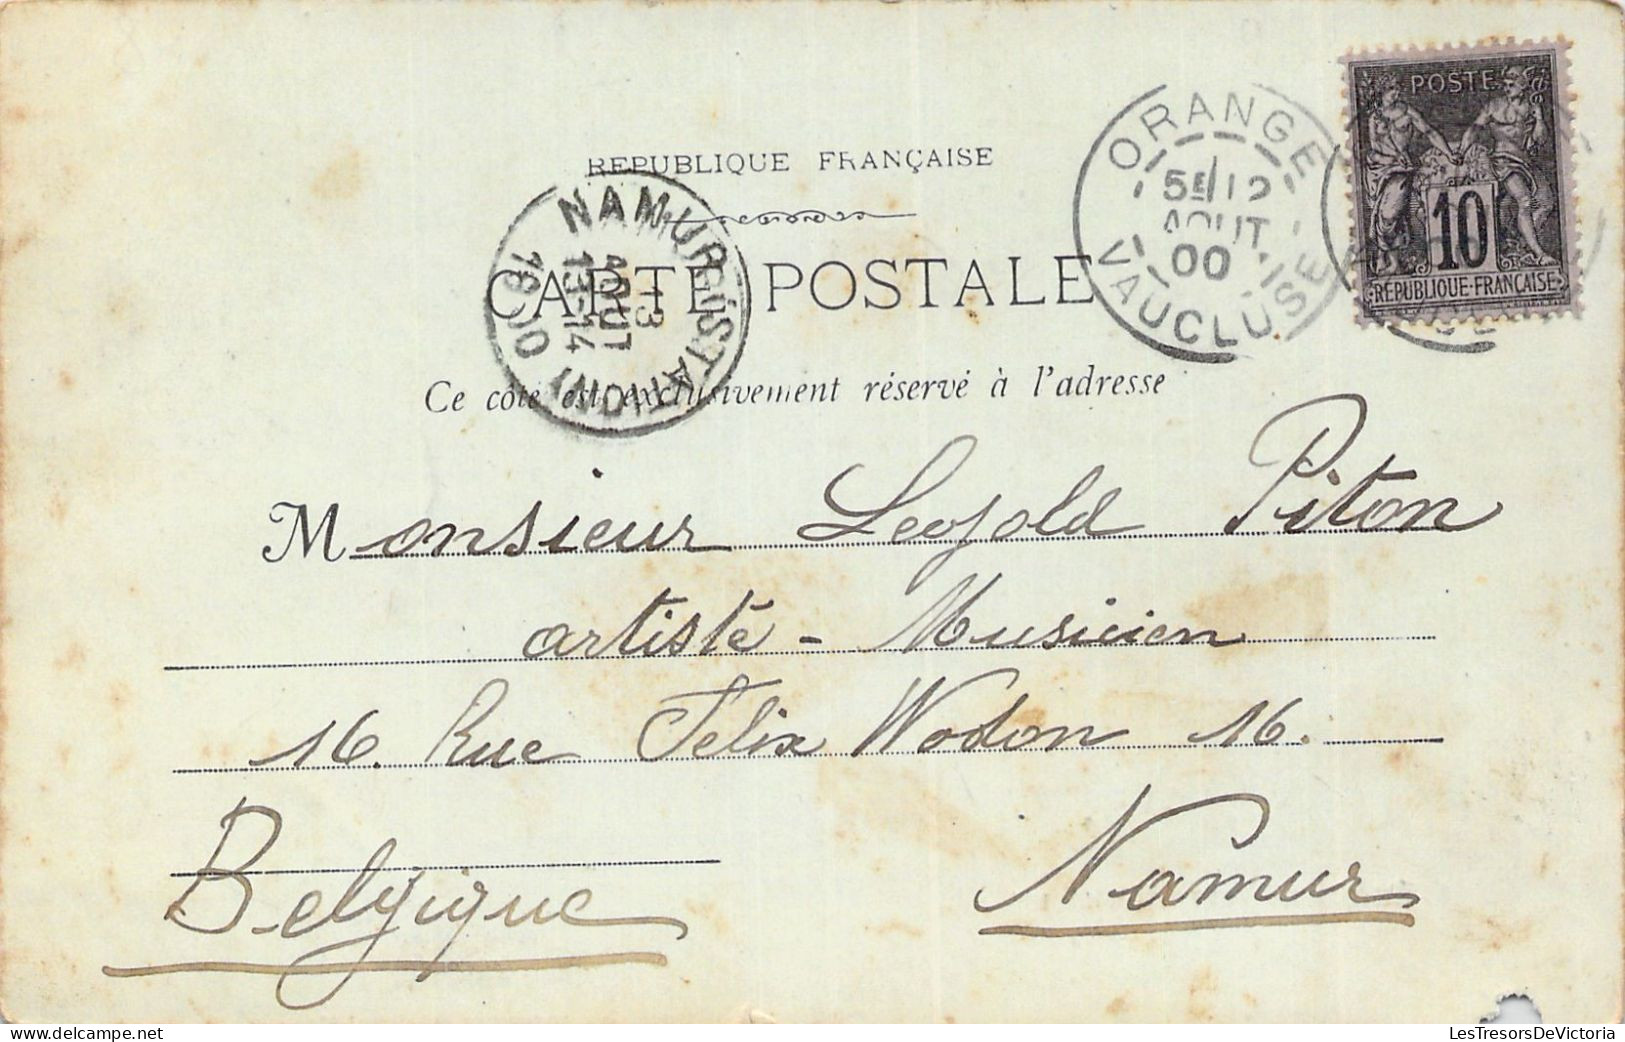 POSTE
10
REPUBLIQUE-FRANÇAISE
ORANGE
5E/12
AOUT
00
VAUCLUSE
REPUBLIQUE FRANÇAISE
NAMUR (STATION)
13
AOUT
13-14
1900
CARTE POSTALE
Ce côté est exclusivement réservé à l'adresse
Monsieur Leopold Piton
artiste - Musicien
16. Rue Felix Wodon 16.
Belgique Namur
LesTresorsDeVictoria